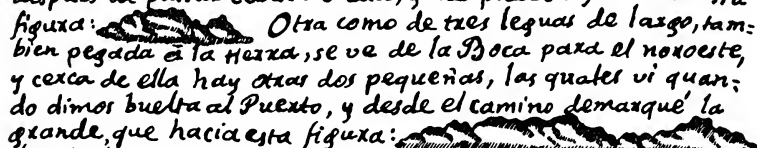 figura: Otra como de tres leguas de largo, tam=
bien pegada à la tierra, se ve de la Boca para el noroeste,
y cerca de ella hay otras dos pequeñas, las quales vi quan=
do dimos buelta al Puerto, y desde el camino demarquè la
grande, que hacia esta figura: